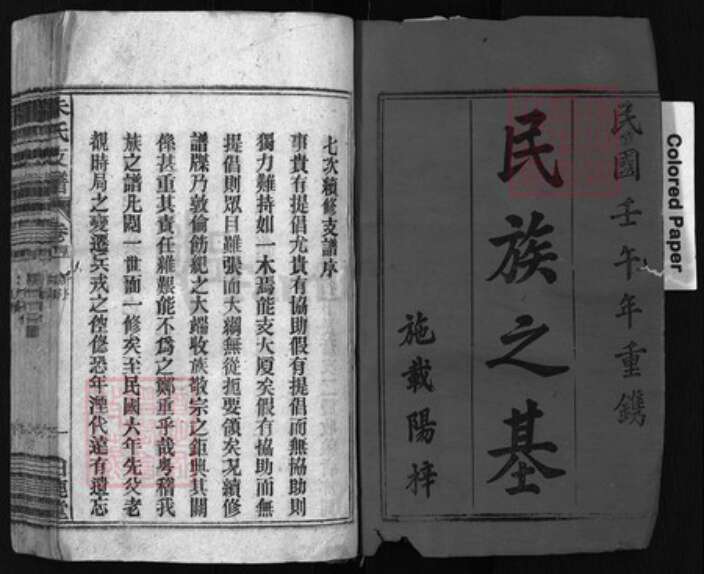 民國壬午年重鐫
民族之基
施載陽梓
Colored Paper
七次續修支譜序
事貴有提倡尤貴有協助假有提倡而無協助則
獨力難持如一木焉能支大厦矣假有協助而無
提倡則眾目雖張而大綱無從扼要領矣況續修
譜牒乃敦倫飭紀之大端收族敬宗之鉅典其關
係甚重其責任維艱能不為之鄭重乎哉粵稽我
族之譜凡閱一世而一修矣至民國六年先父老
觀時局之變遷兵戎之倥傯恐年湮代遠有遺忘
朱氏支譜 卷